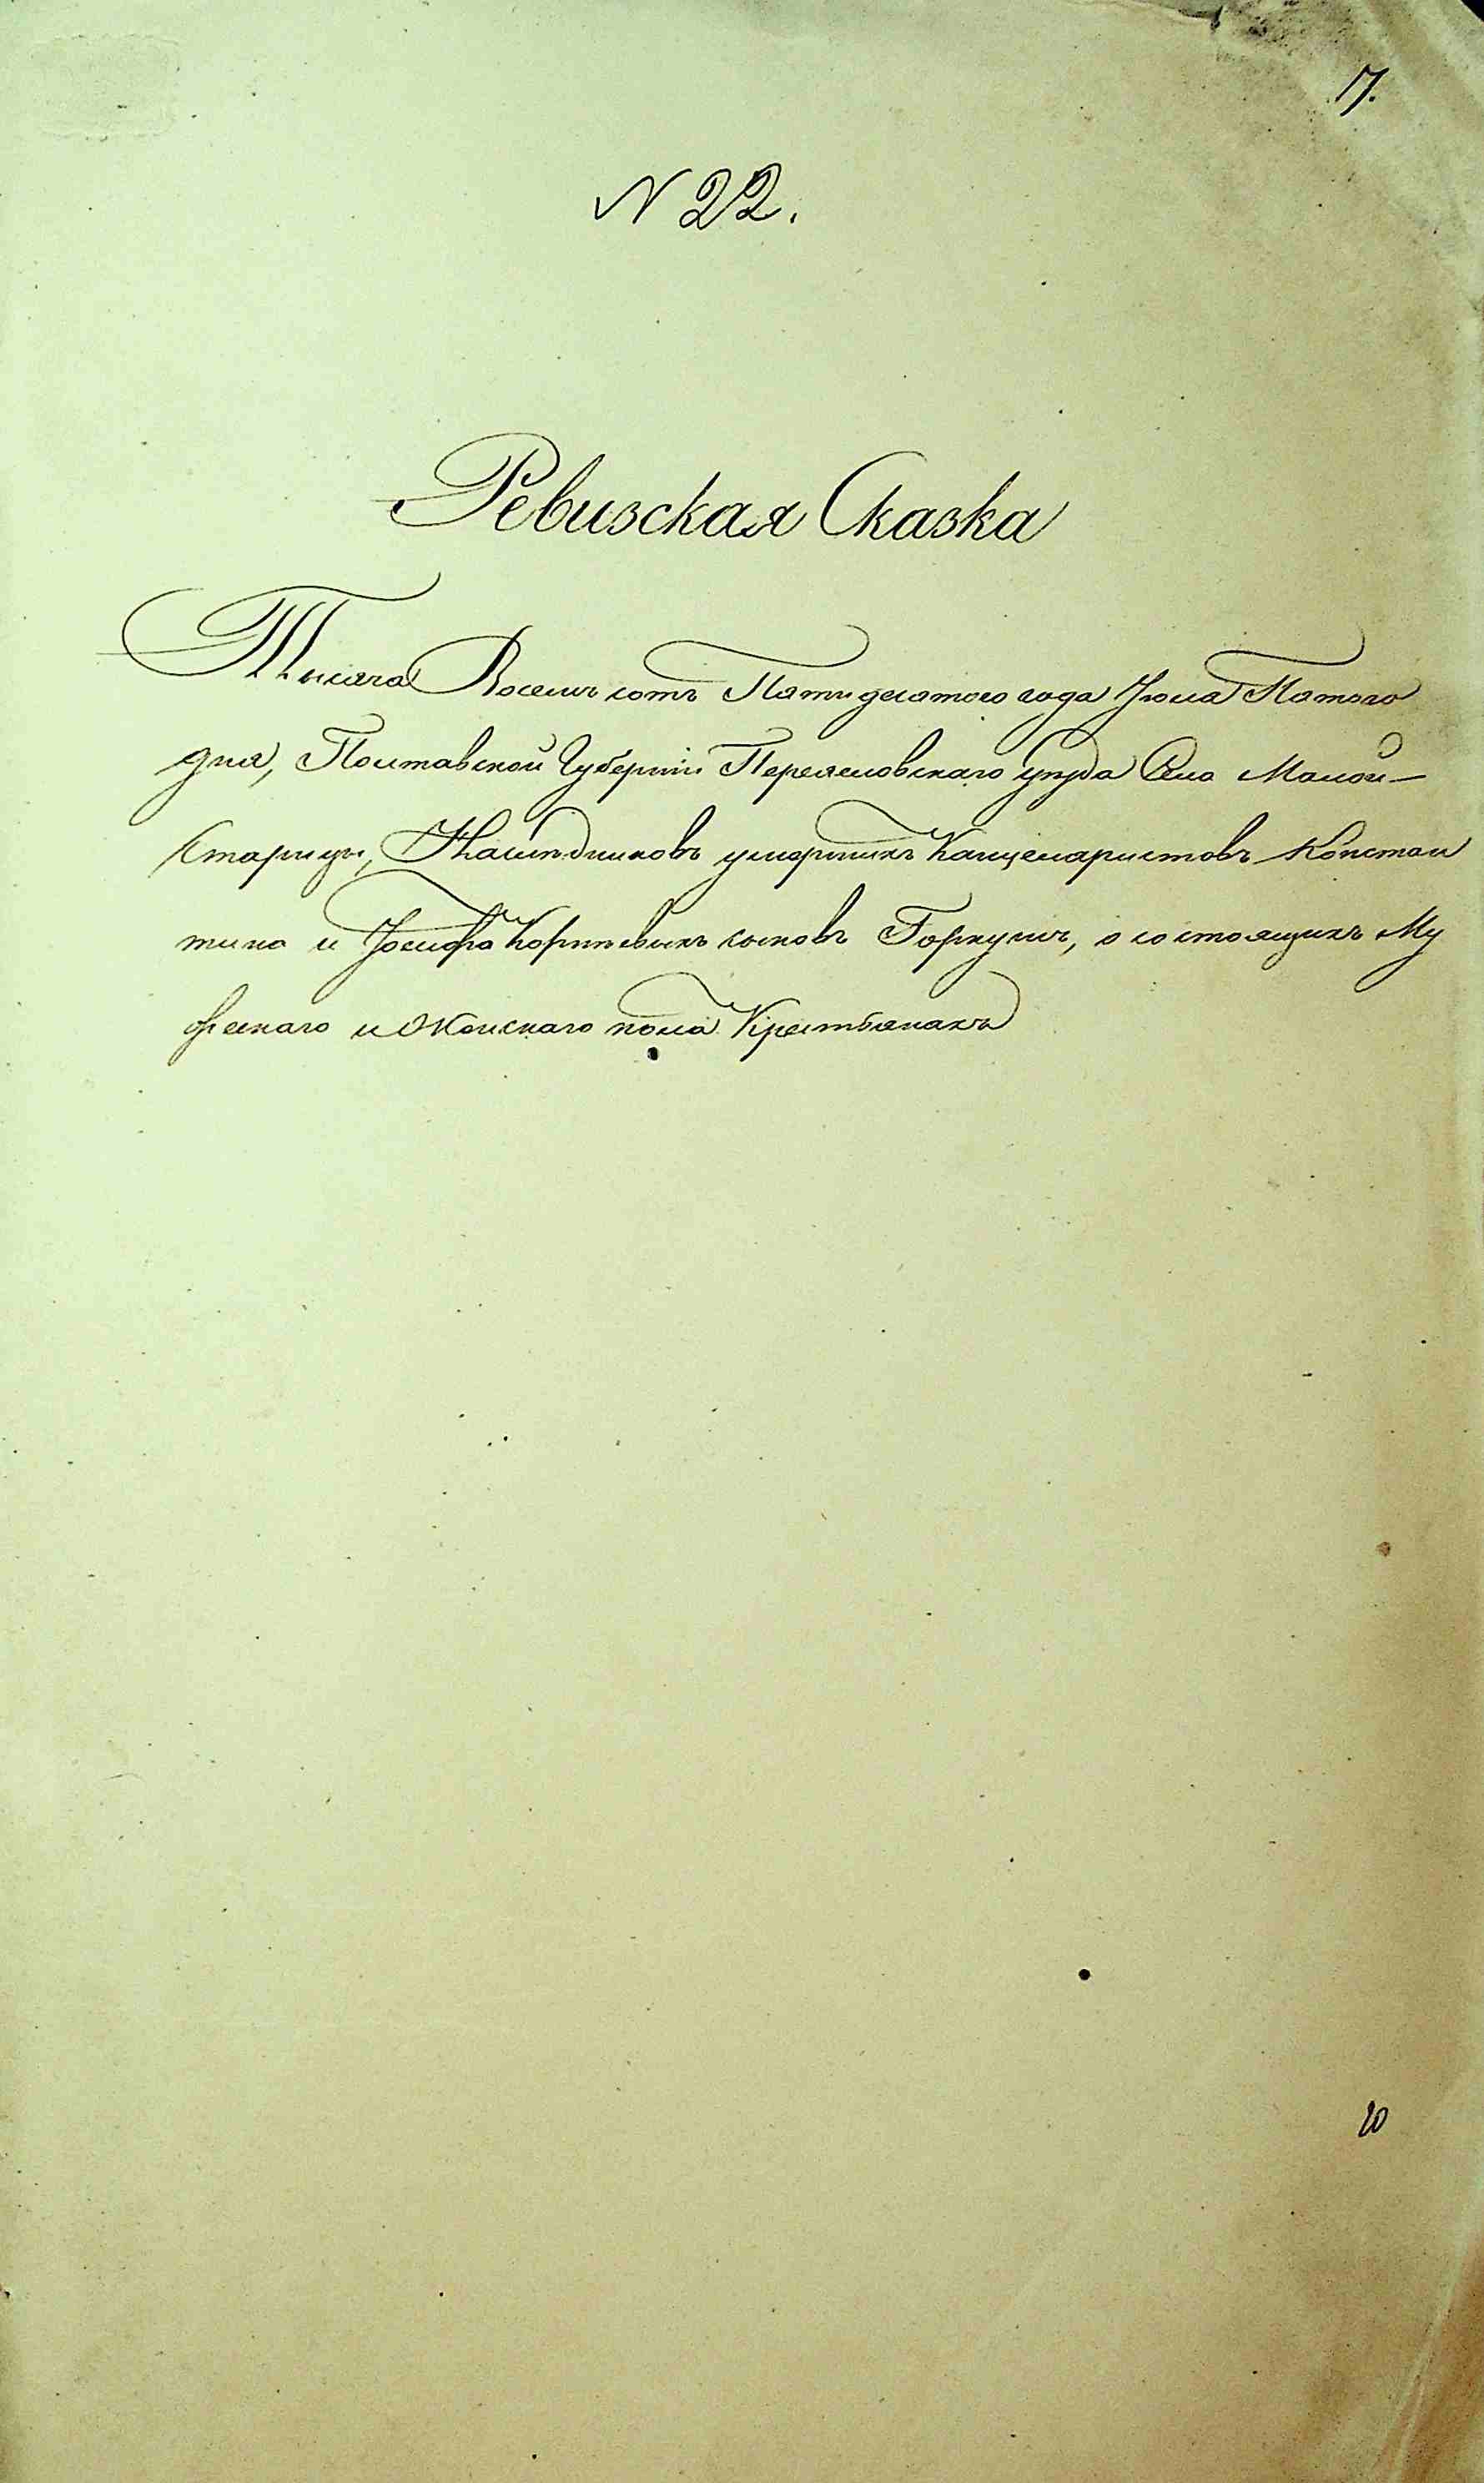 17.
N 22.
Ревизская Сказка
Тысяча Восемь сотъ Пятидесятого года Іюля Пятого
дня, Полтавской Губерніи Переяславскаго уѣзда Села Малой-
Старицы, Наслѣдниковъ умершихъ Канцеляристовъ Констан
тина и Іосифа Корнѣевыхъ сыновъ Горкушъ, о состоящихъ Му
жескаго и Женскаго пола Крестьянахъ
20